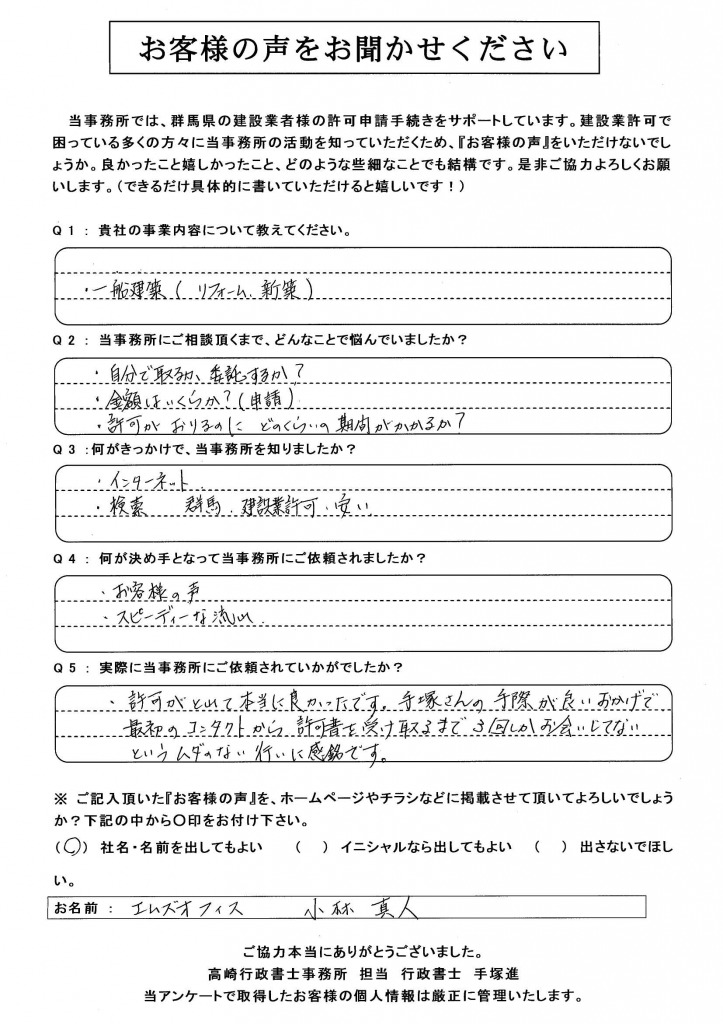 お客様の声をお聞かせください
当事務所では、群馬県の建設業者様の許可申請手続きをサポートしています。建設業許可で
困っている多くの方々に当事務所の活動を知っていただくため、『お客様の声』をいただけないでし
ょうか。良かったこと嬉しかったこと、どのような些細なことでも結構です。是非ご協力よろしくお願
いします。（できるだけ具体的に書いていただけると嬉しいです！）
Q1 : 貴社の事業内容について教えてください。
・一船建築( リフォーム. 新築 )
Q2 : 当事務所にご相談頂くまで、どんなことで悩んでいましたか？
・自分で取るか、委託するか？
・金額はいくらか？(申請)
・許可が おりるのに どのくらいの期間がかかるか？
Q3 :何がきっかけで、当事務所を知りましたか？
・インターネット.
・検索 群馬. 建設業許可. 安い
Q4 : 何が決め手となって当事務所にご依頼されましたか？
・お客様の声
・スピーディーな流れ.
Q5 : 実際に当事務所にご依頼されていかがでしたか？
・許可がとれて本当に良かったです。手塚さんの手際が良いおかげで
最初のコンタクトから 許可書を受け取るまで 3回しかお会いしてない
というムダのない 行いに感銘です。
※ ご記入頂いた『お客様の声』を、ホームページやチラシなどに掲載させて頂いてよろしいでしょう
か？下記の中から〇印をお付け下さい。
(〇) 社名・名前を出してもよい ( ) イニシャルなら出してもよい ( ) 出さないでほし
い。
お名前 : エムズオフィス 小林 真人
ご協力本当にありがとうございました。
高崎行政書士事務所 担当 行政書士 手塚進
当アンケートで取得したお客様の個人情報は厳正に管理いたします。